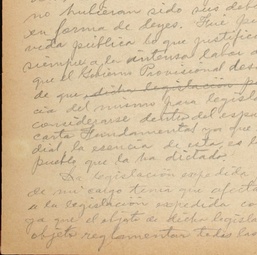 no hubieran sido sus deb
en forma de leyes. Fué pu
vista pública lo que justific
siempre a la intensa labor d
que el Gobierno Provisional des
de que dicha legislación p
cia del mismo para legisl
considerarse dentro del esp
carta fundamental ya que
dial, la esencia de esta, es l
pueblo que la ha dictado.
La legislación expedida
de mi cargo tenía que afecta
a la legislación expedida co
ya que el objeto de dicha legisla
objeto reglamentar todas las